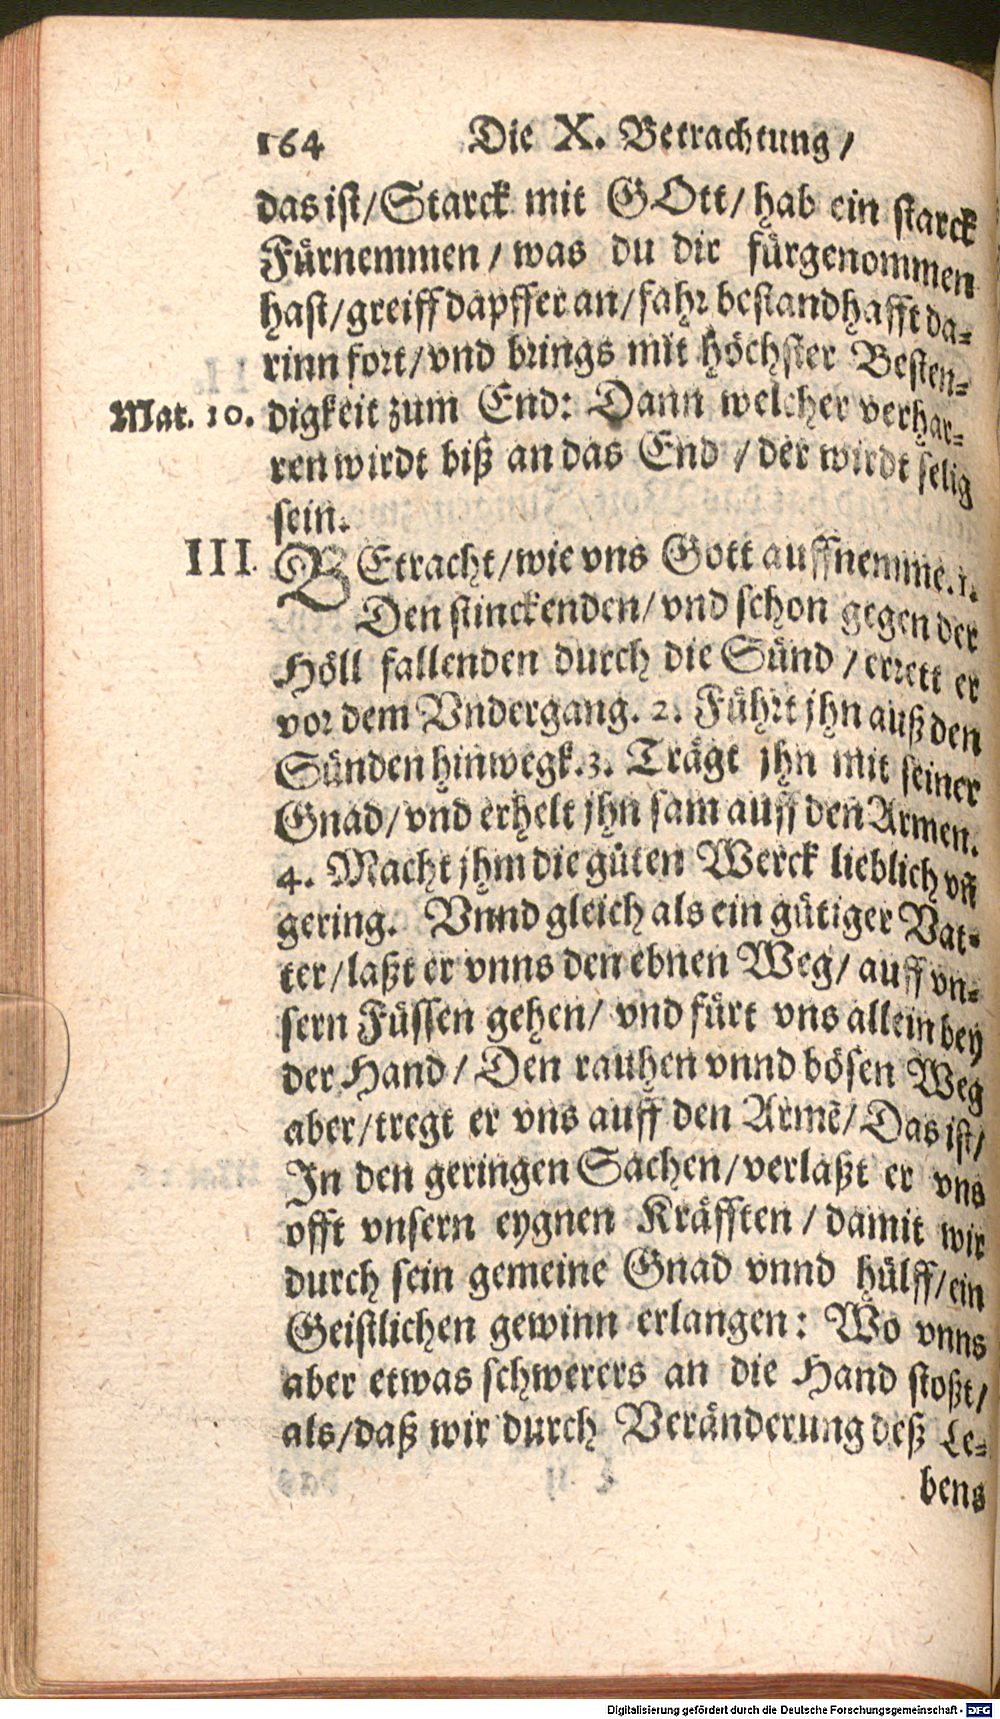 164 Die X. Betrachtung /
das ist / Starck mit GOtt / hab ein starck
Fürnemmen / was du dir fürgenommen
hast / greiff dapffer an / fahr bestandhafft da-
rinn fort / vnd brings mit höchster Besten-
Mat. 10. digkeit zum End: Dann welcher verhar-
ren wirdt biß an das End / der wirdt selig
sein.
III. BEtracht / wie vns Gott auffnemme. 1.
Den stinckenden / vnd schon gegen der
Höll fallenden durch die Sünd / errett er
vor dem Vndergang. 2. Führt jhn auß den
Sünden hinwegk. 3. Trägt jhn mit seiner
Gnad / vnd erhelt jhn sam auff den Armen.
4. Macht jhm die güten Werck lieblich vñ
gering. Vnnd gleich als ein gütiger Vat-
ter / laßt er vnns den ebnen Weg / auff vn-
sern Füssen gehen / vnd fürt vns allein bey
der Hand / Den rauhen vnnd bösen Weg
aber / tregt er vns auff den Armẽ / Das ist /
In den geringen Sachen / verlaßt er vns
offt vnsern eygnen Kräfften / damit wir
durch sein gemeine Gnad vnnd hülff / ein
Geistlichen gewinn erlangen: Wo vnns
aber etwas schwerers an die Hand stoßt /
als / daß wir durch Veränderung deß Le-
bens
Digitalisierung gefördert durch die Deutsche Forschungsgemeinschaft - DFG